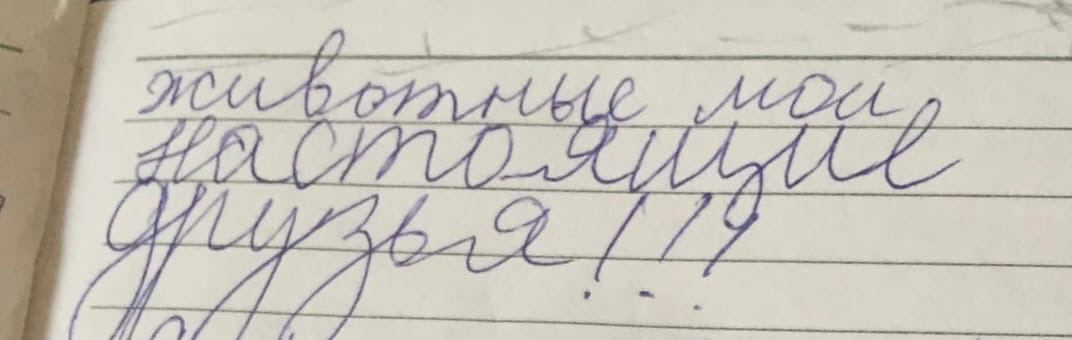 животные мои
настоящие
друзья!!!